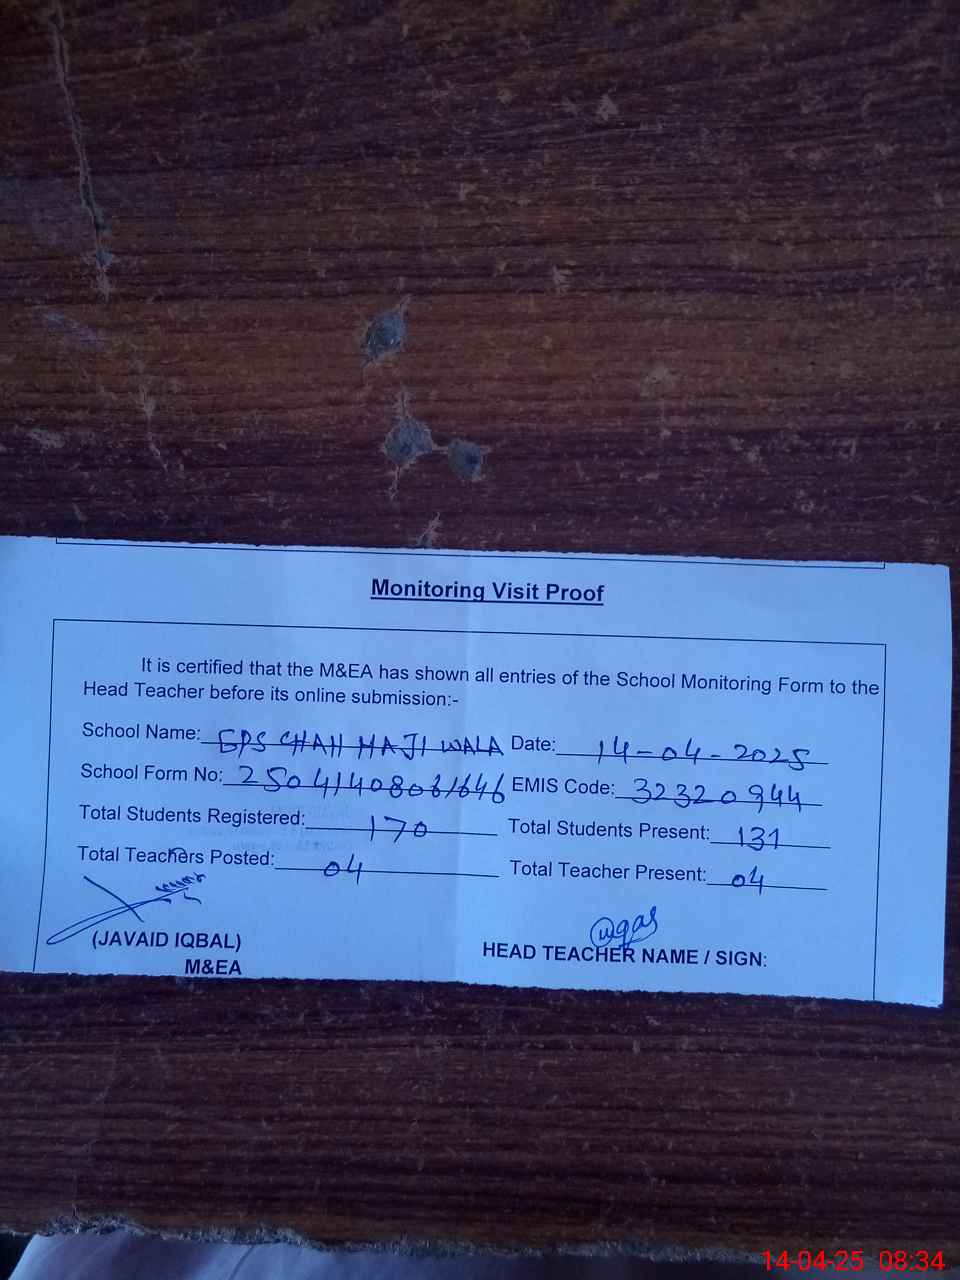 Monitoring Visit Proof
It is certified that the M&EA has shown all entries of the School Monitoring Form to the
Head Teacher before its online submission:-
School Name: GPS CHAH HAJI WALA Date: 14-04-2025
School Form No: 25041408061646 EMIS Code: 32320944
Total Students Registered: 170 Total Students Present: 131
Total Teachers Posted: 04 Total Teacher Present: 04
(JAVAID IQBAL)
M&EA
HEAD TEACHER NAME / SIGN:
14-04-25 08:34